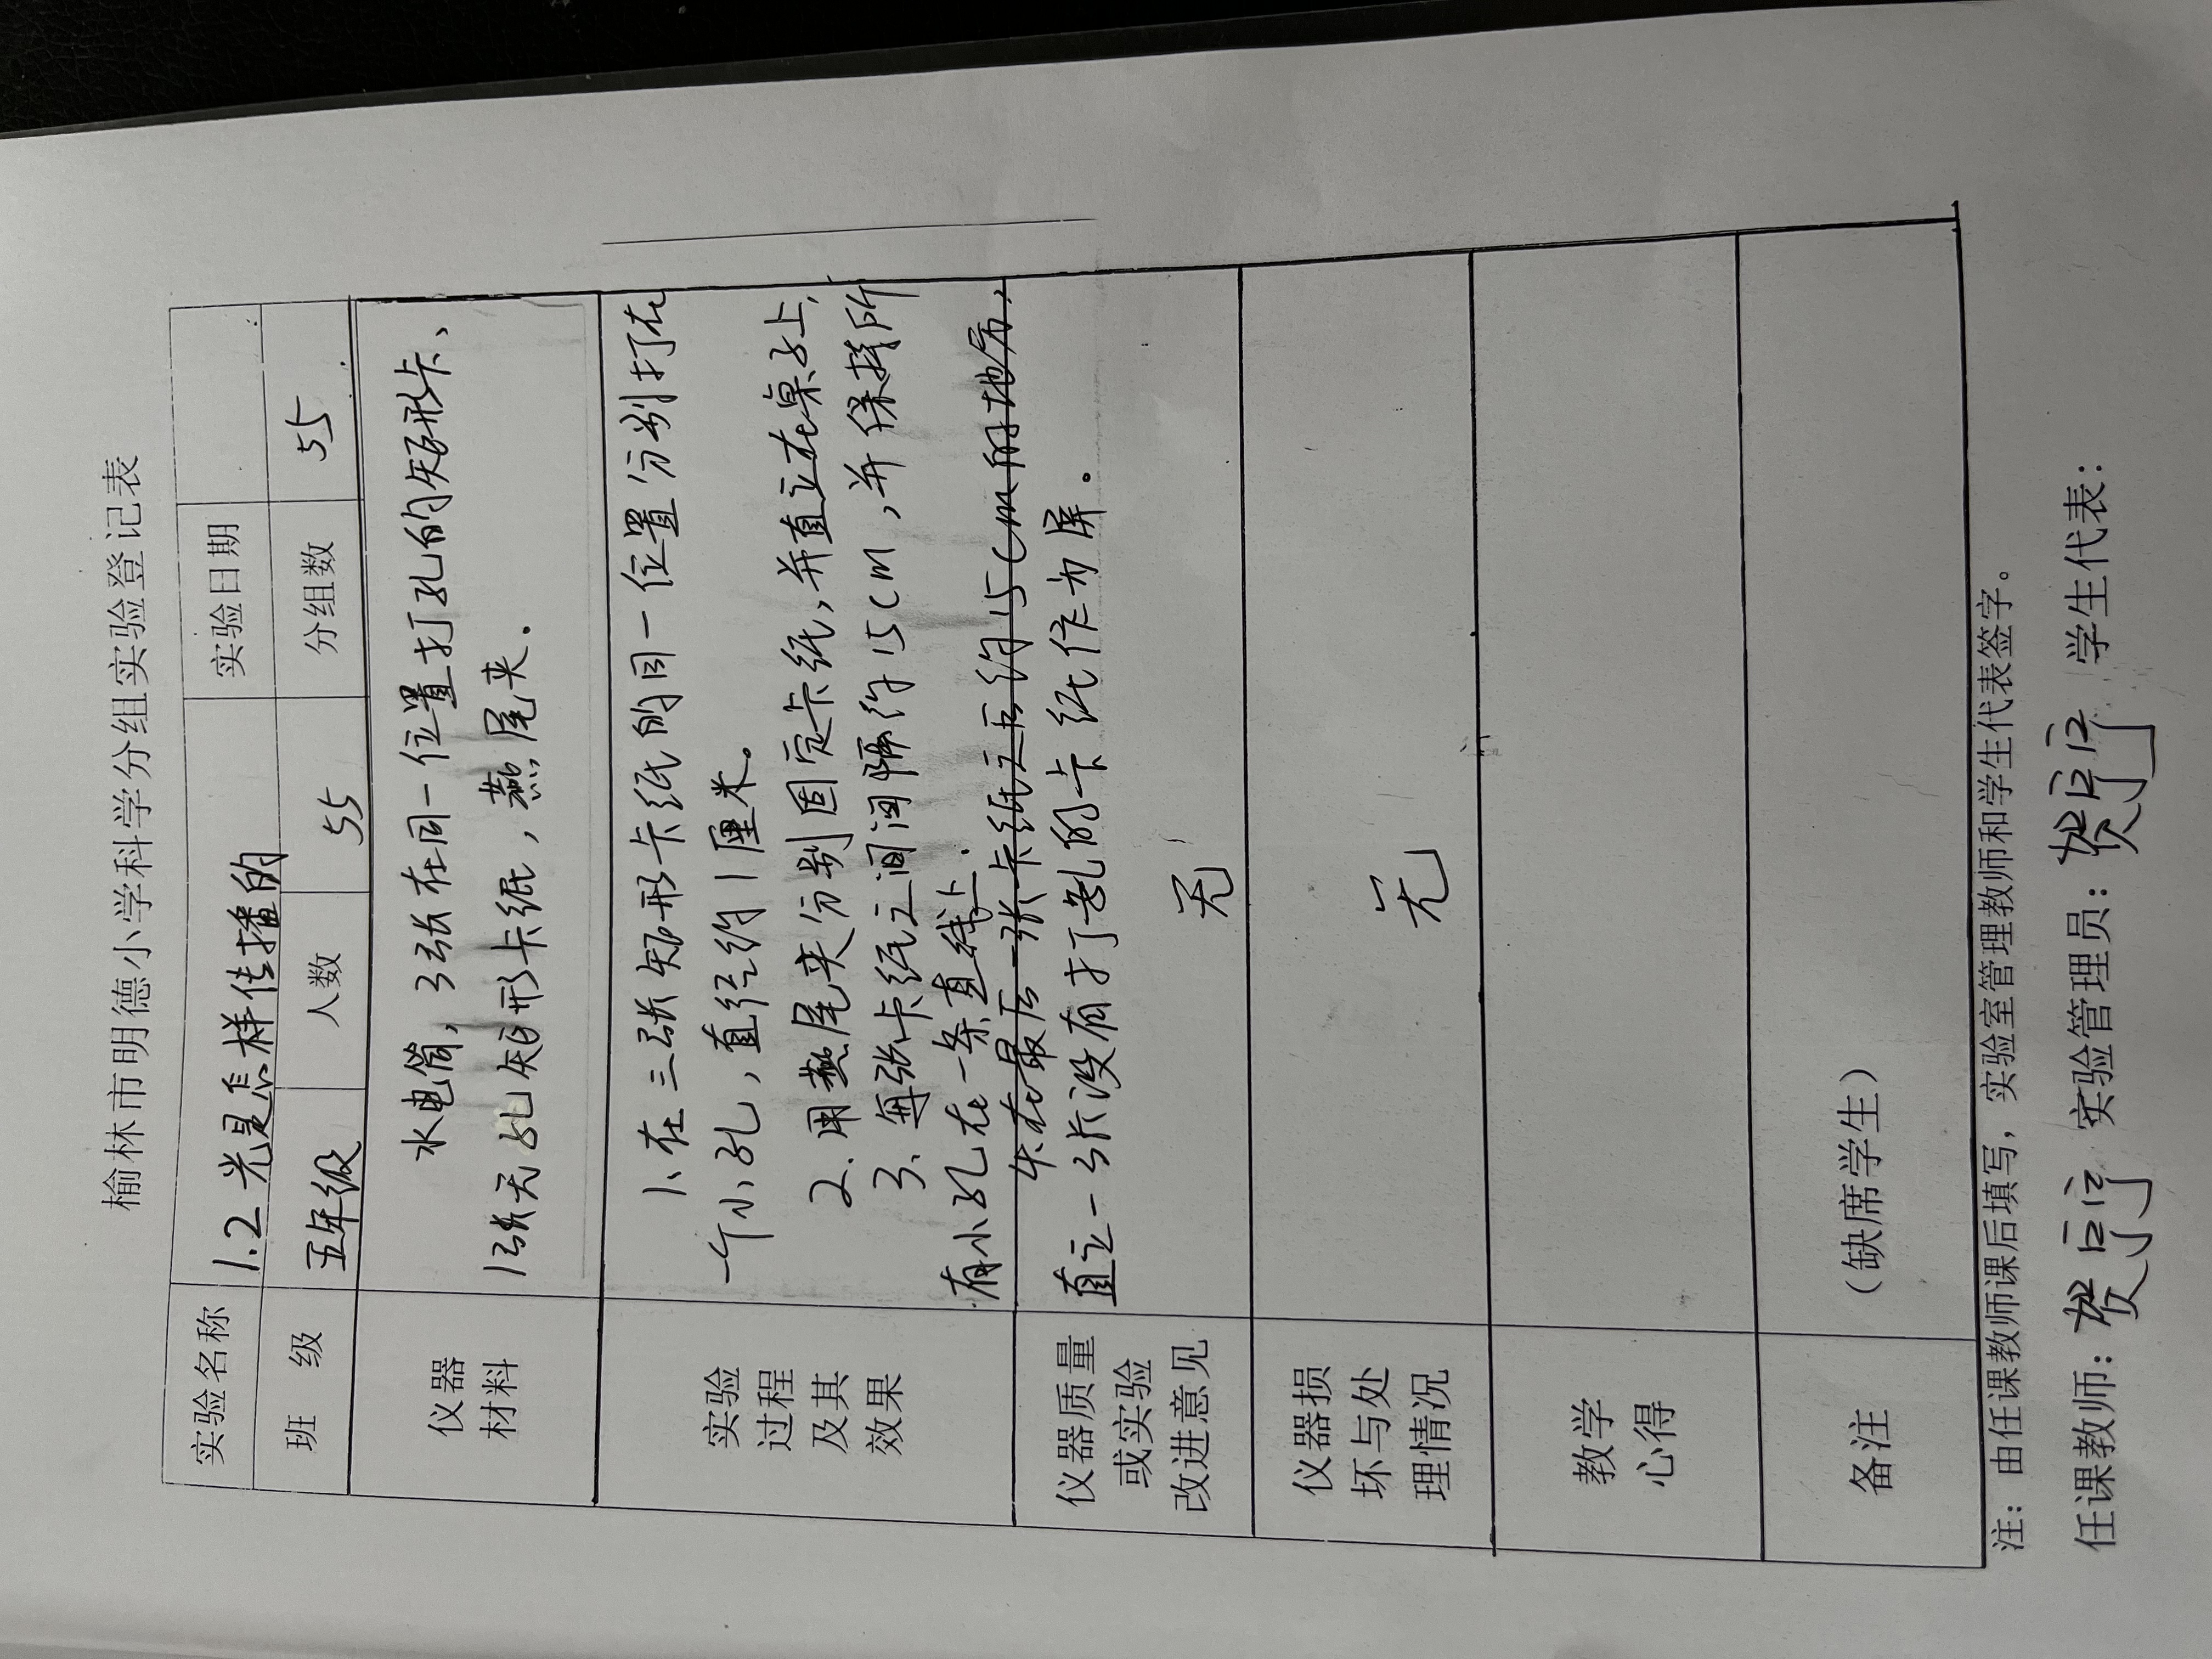 榆林市明德小学科学分组实验登记表
实验名称 1.2光是怎样传播的 实验日期
班 级 五年级 人数 55 分组数 55
仪器
材料
水电筒,3张在同一位置打孔的矩形卡、
1张无孔矩形卡纸,燕尾夹.
实验
过程
及其
效果
1、在三张矩形卡纸的同一位置分别打在
一个小孔,直径约1厘米。
2.用燕尾夹分别固定卡纸,并直立在桌子上,
3、每张卡纸之间间隔约15cm,并保持所
有小孔在一条直线上.
4.在最后一张卡纸之后约15cm的地方,
直立一张没有打孔的卡纸作为屏.
仪器质量
或实验
改进意见
无
仪器损
坏与处
理情况
无
教学
心得
备注
(缺席学生)
注:由任课教师课后填写,实验室管理教师和学生代表签字。
任课教师: 实验管理员: 学生代表: